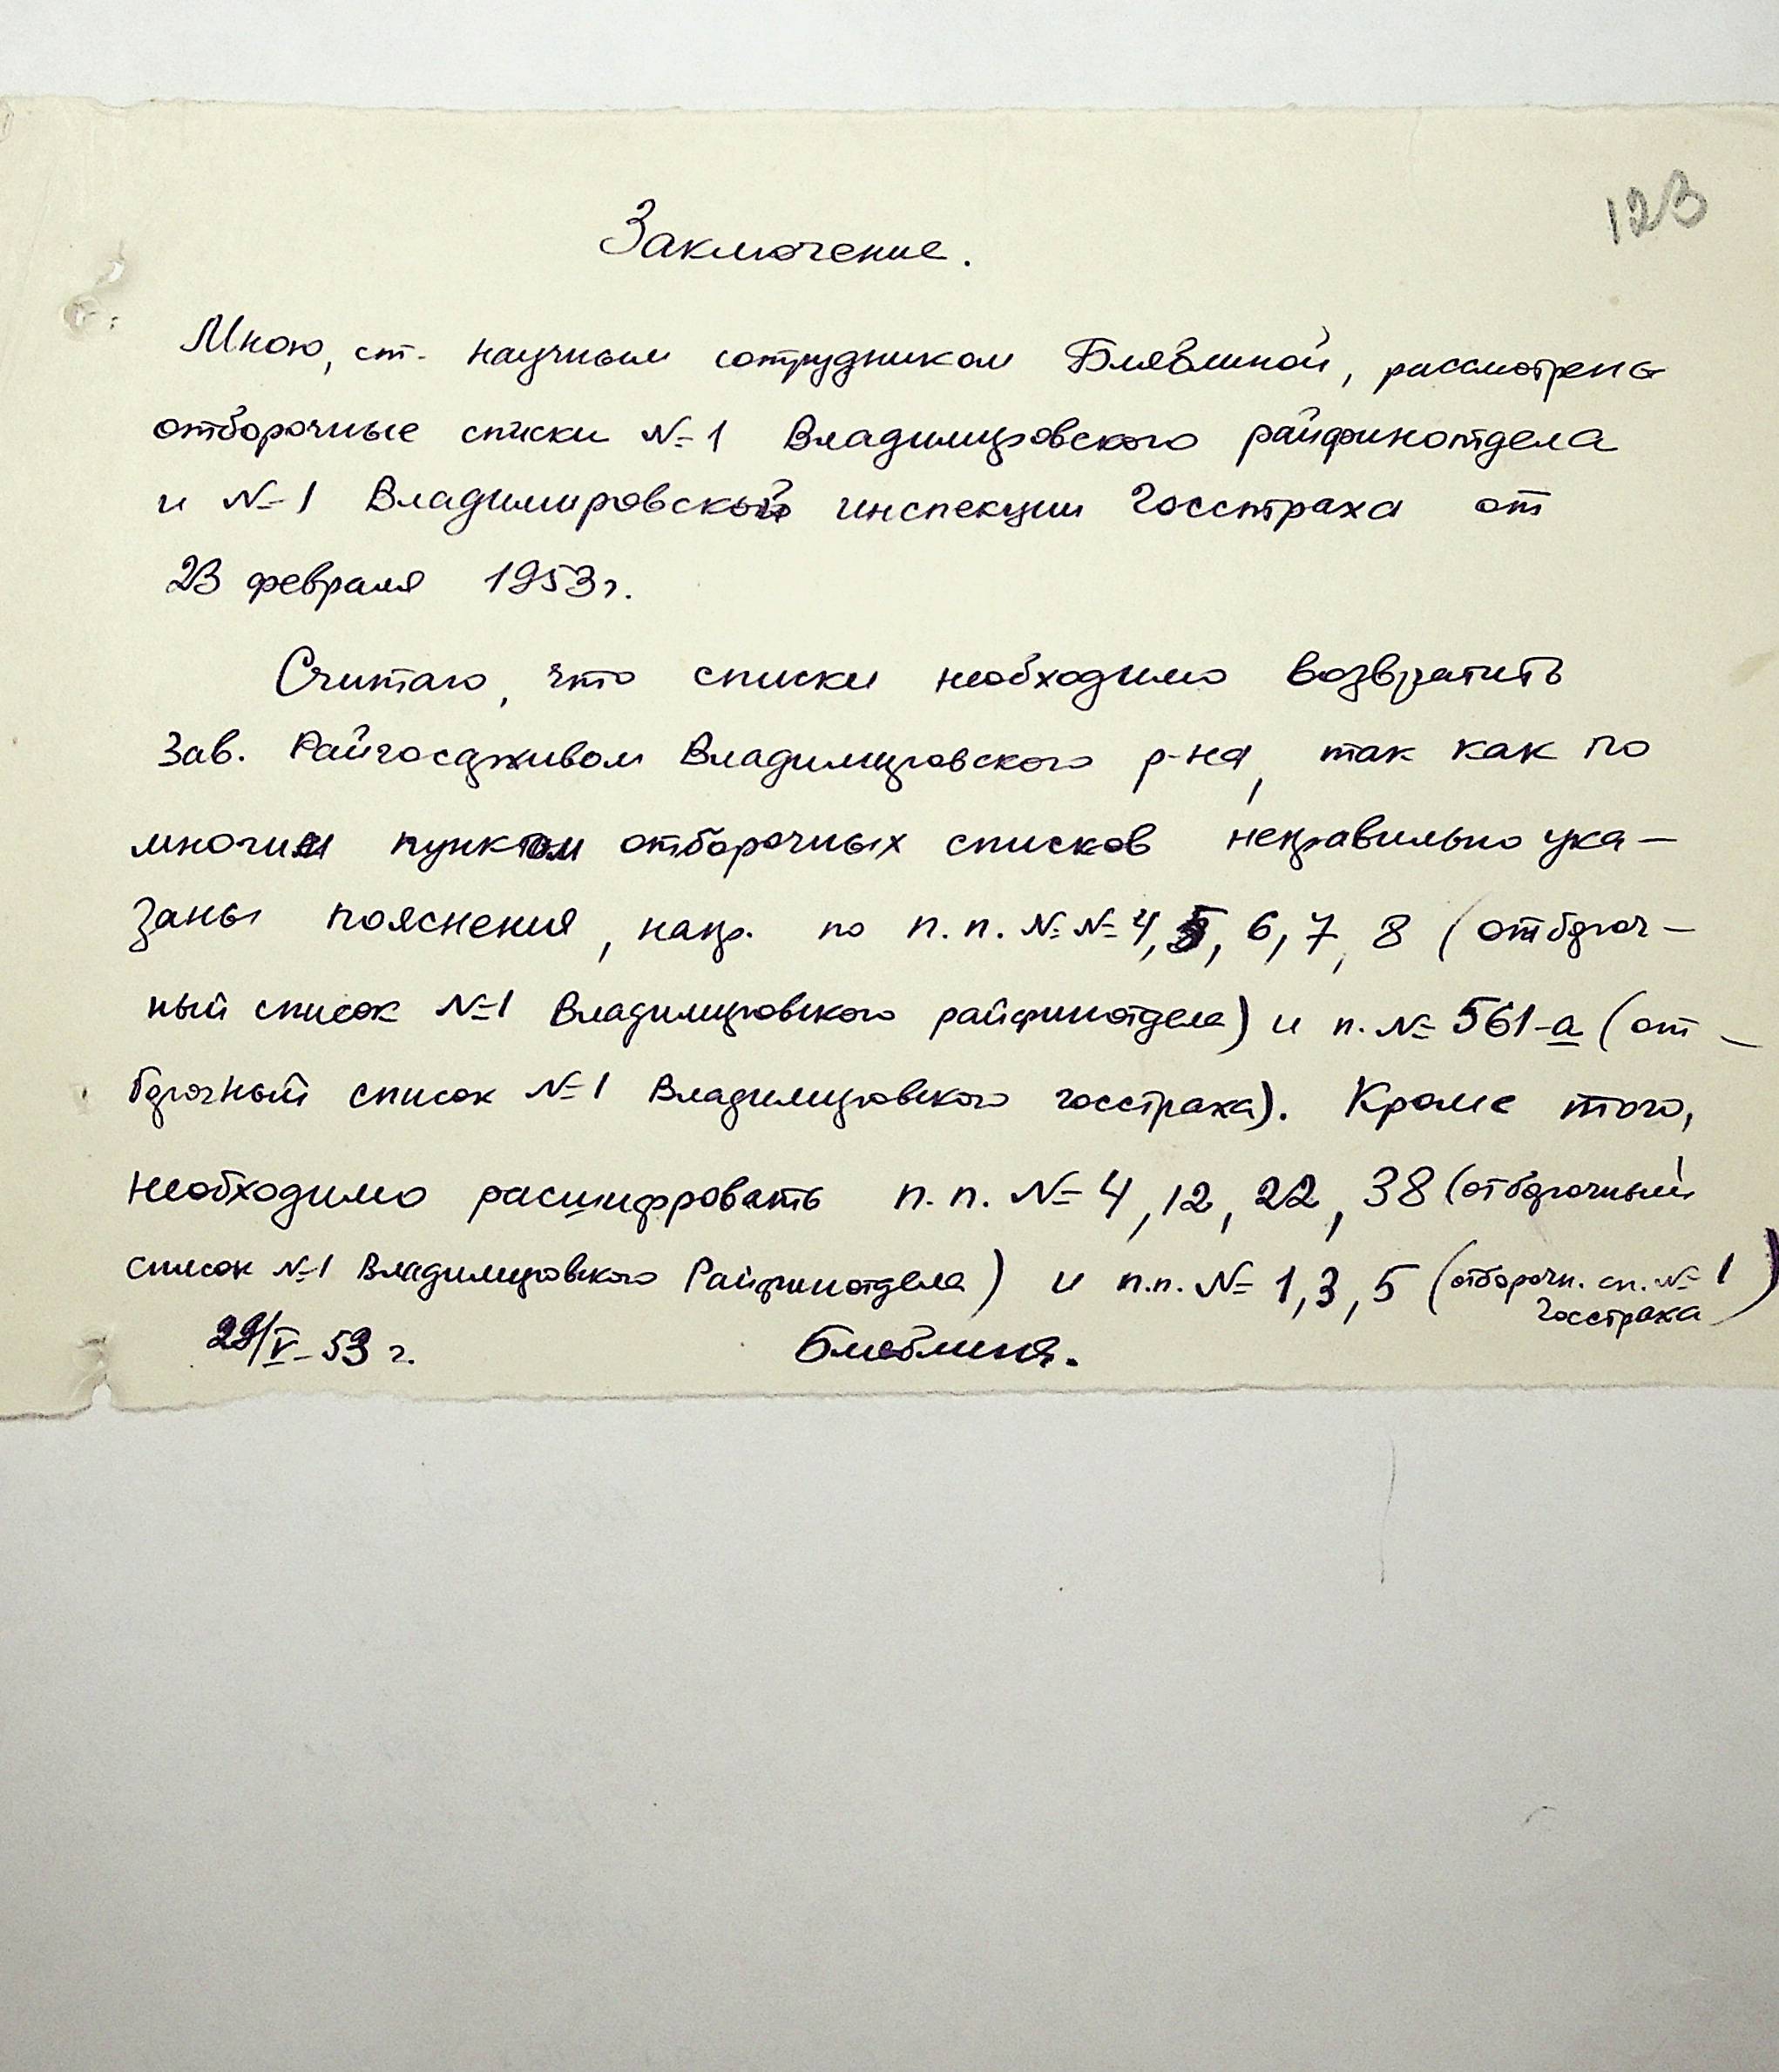 123
Заключение.
Мною, ст. научным сотрудником Блявлиной, рассмотрены
отборочные списки №1 Владимировского райфинотдела
и №1 Владимировской инспекции Госстраха от
23 февраля 1953г.
Считаю, что списки необходимо возвратить
Зав. Райгосархивом Владимировского р-на, так как по
многим пунктам отборочных списков неправильно ука-
заны пояснения, напр. по п.п. №№ 4, 5, 6, 7, 8 (отбороч-
ный список №1 Владимировского райфинотдела) и п. № 561-а (от-
борочный список №1 Владимировского госстраха). Кроме того,
необходимо расшифровать п.п. № 4, 12, 22, 38 (отборочный
список №1 Владимировского Райфинотдела) и п.п. № 1, 3, 5 (отборочн. сп. № 1
Госстраха)
29/V-53 г. Блявлина.